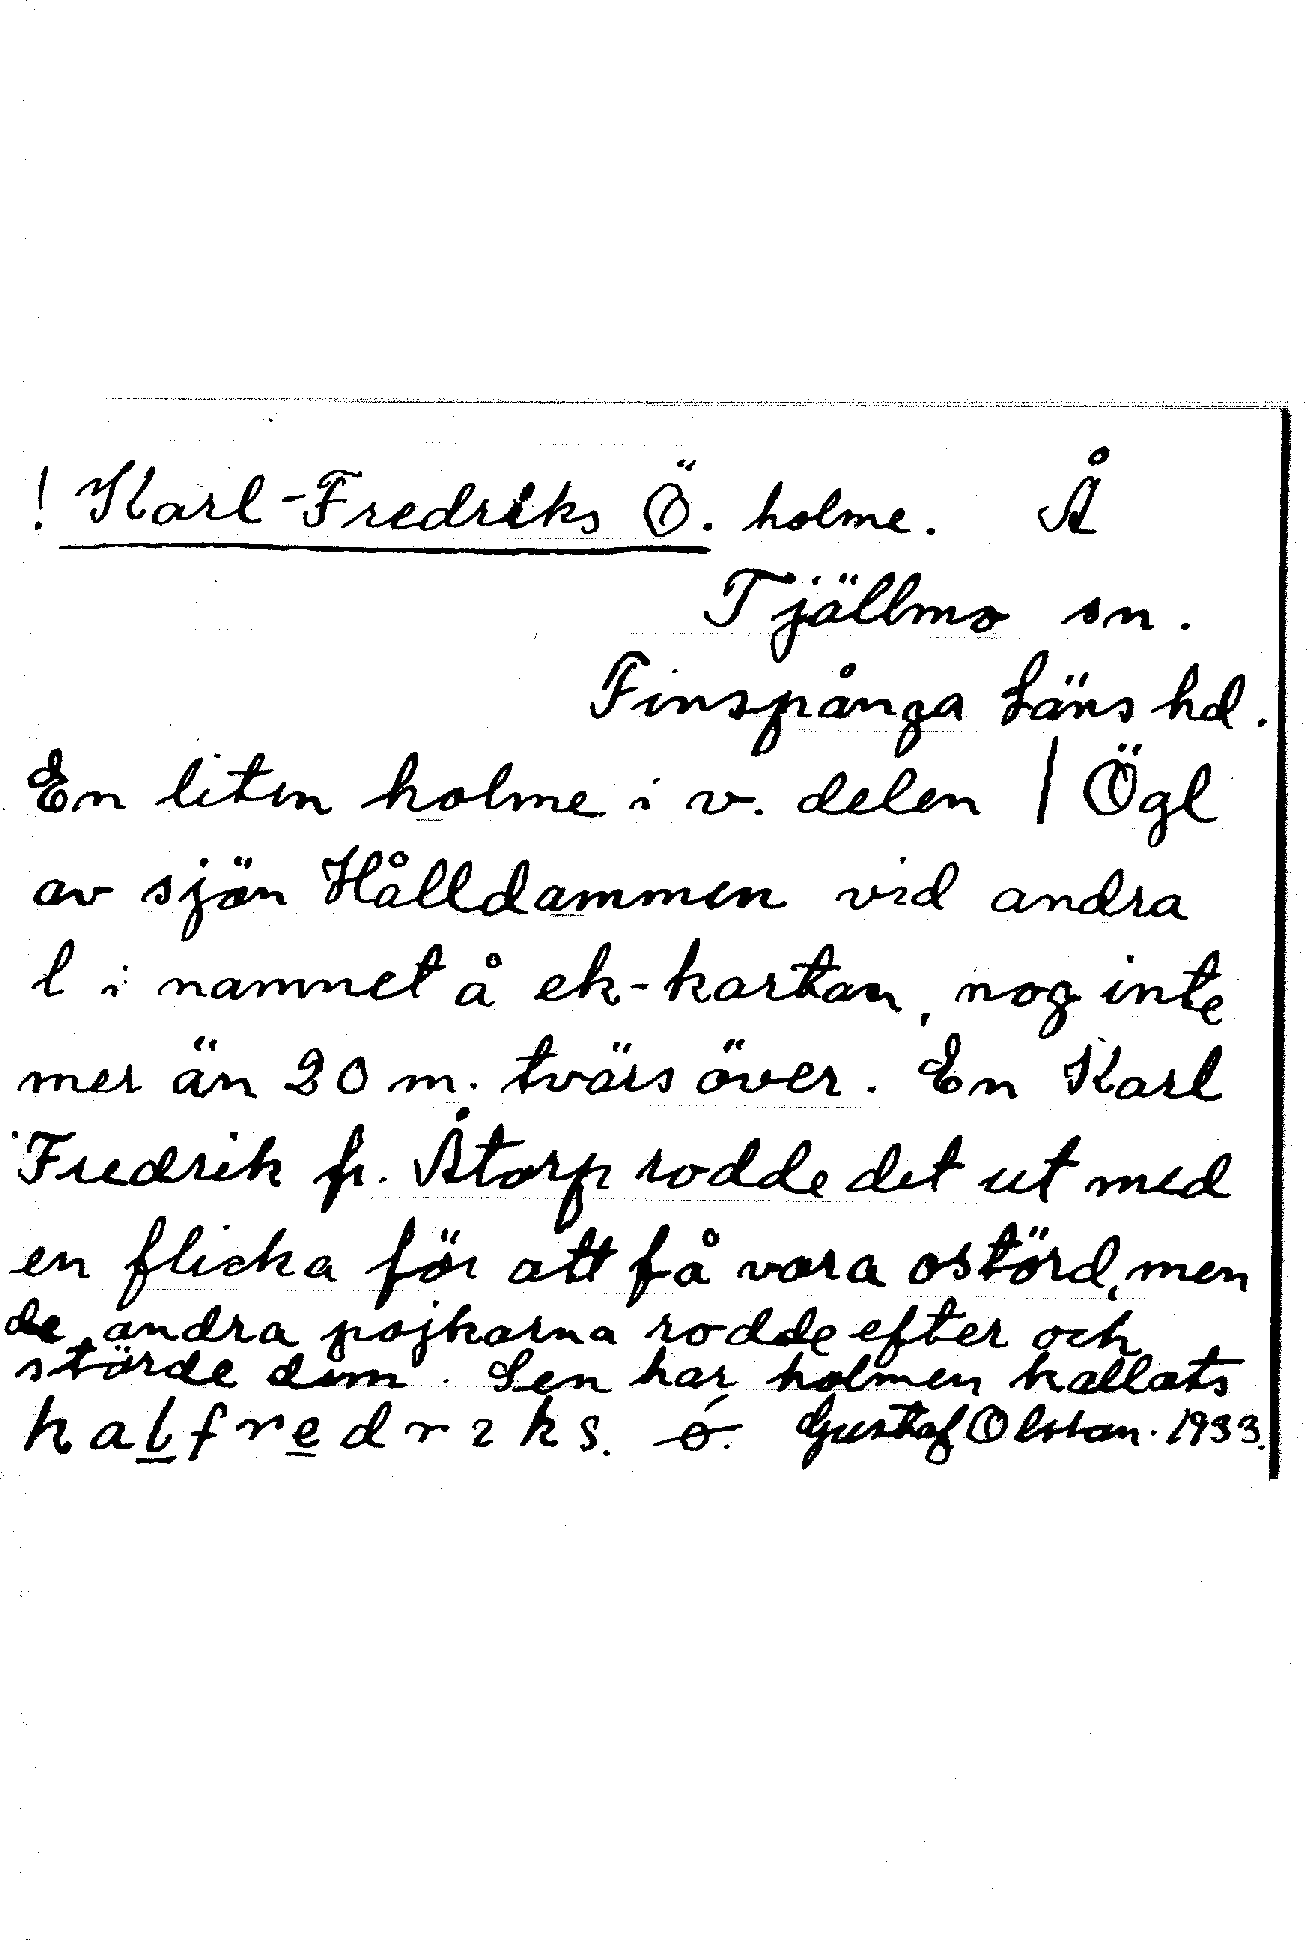 ! Karl-Fredriks Ö. holme. Å
Tjällmo sn.
Finspånga Läns hd.
En liten holme i v. delen | Ögl
av sjön Hålldammen vid andra
l i namnet å ek-kartan, nog inte
mer än 20 m. tvärs över. En Karl
Fredrik fr. Åtorp rodde det ut med
en flicka för att få vara ostörd, men
de andra pojkarna rodde efter och
störde dem. Sen har holmen kallats
kalfredrıks. ó. Gustaf Olsson. 1933.